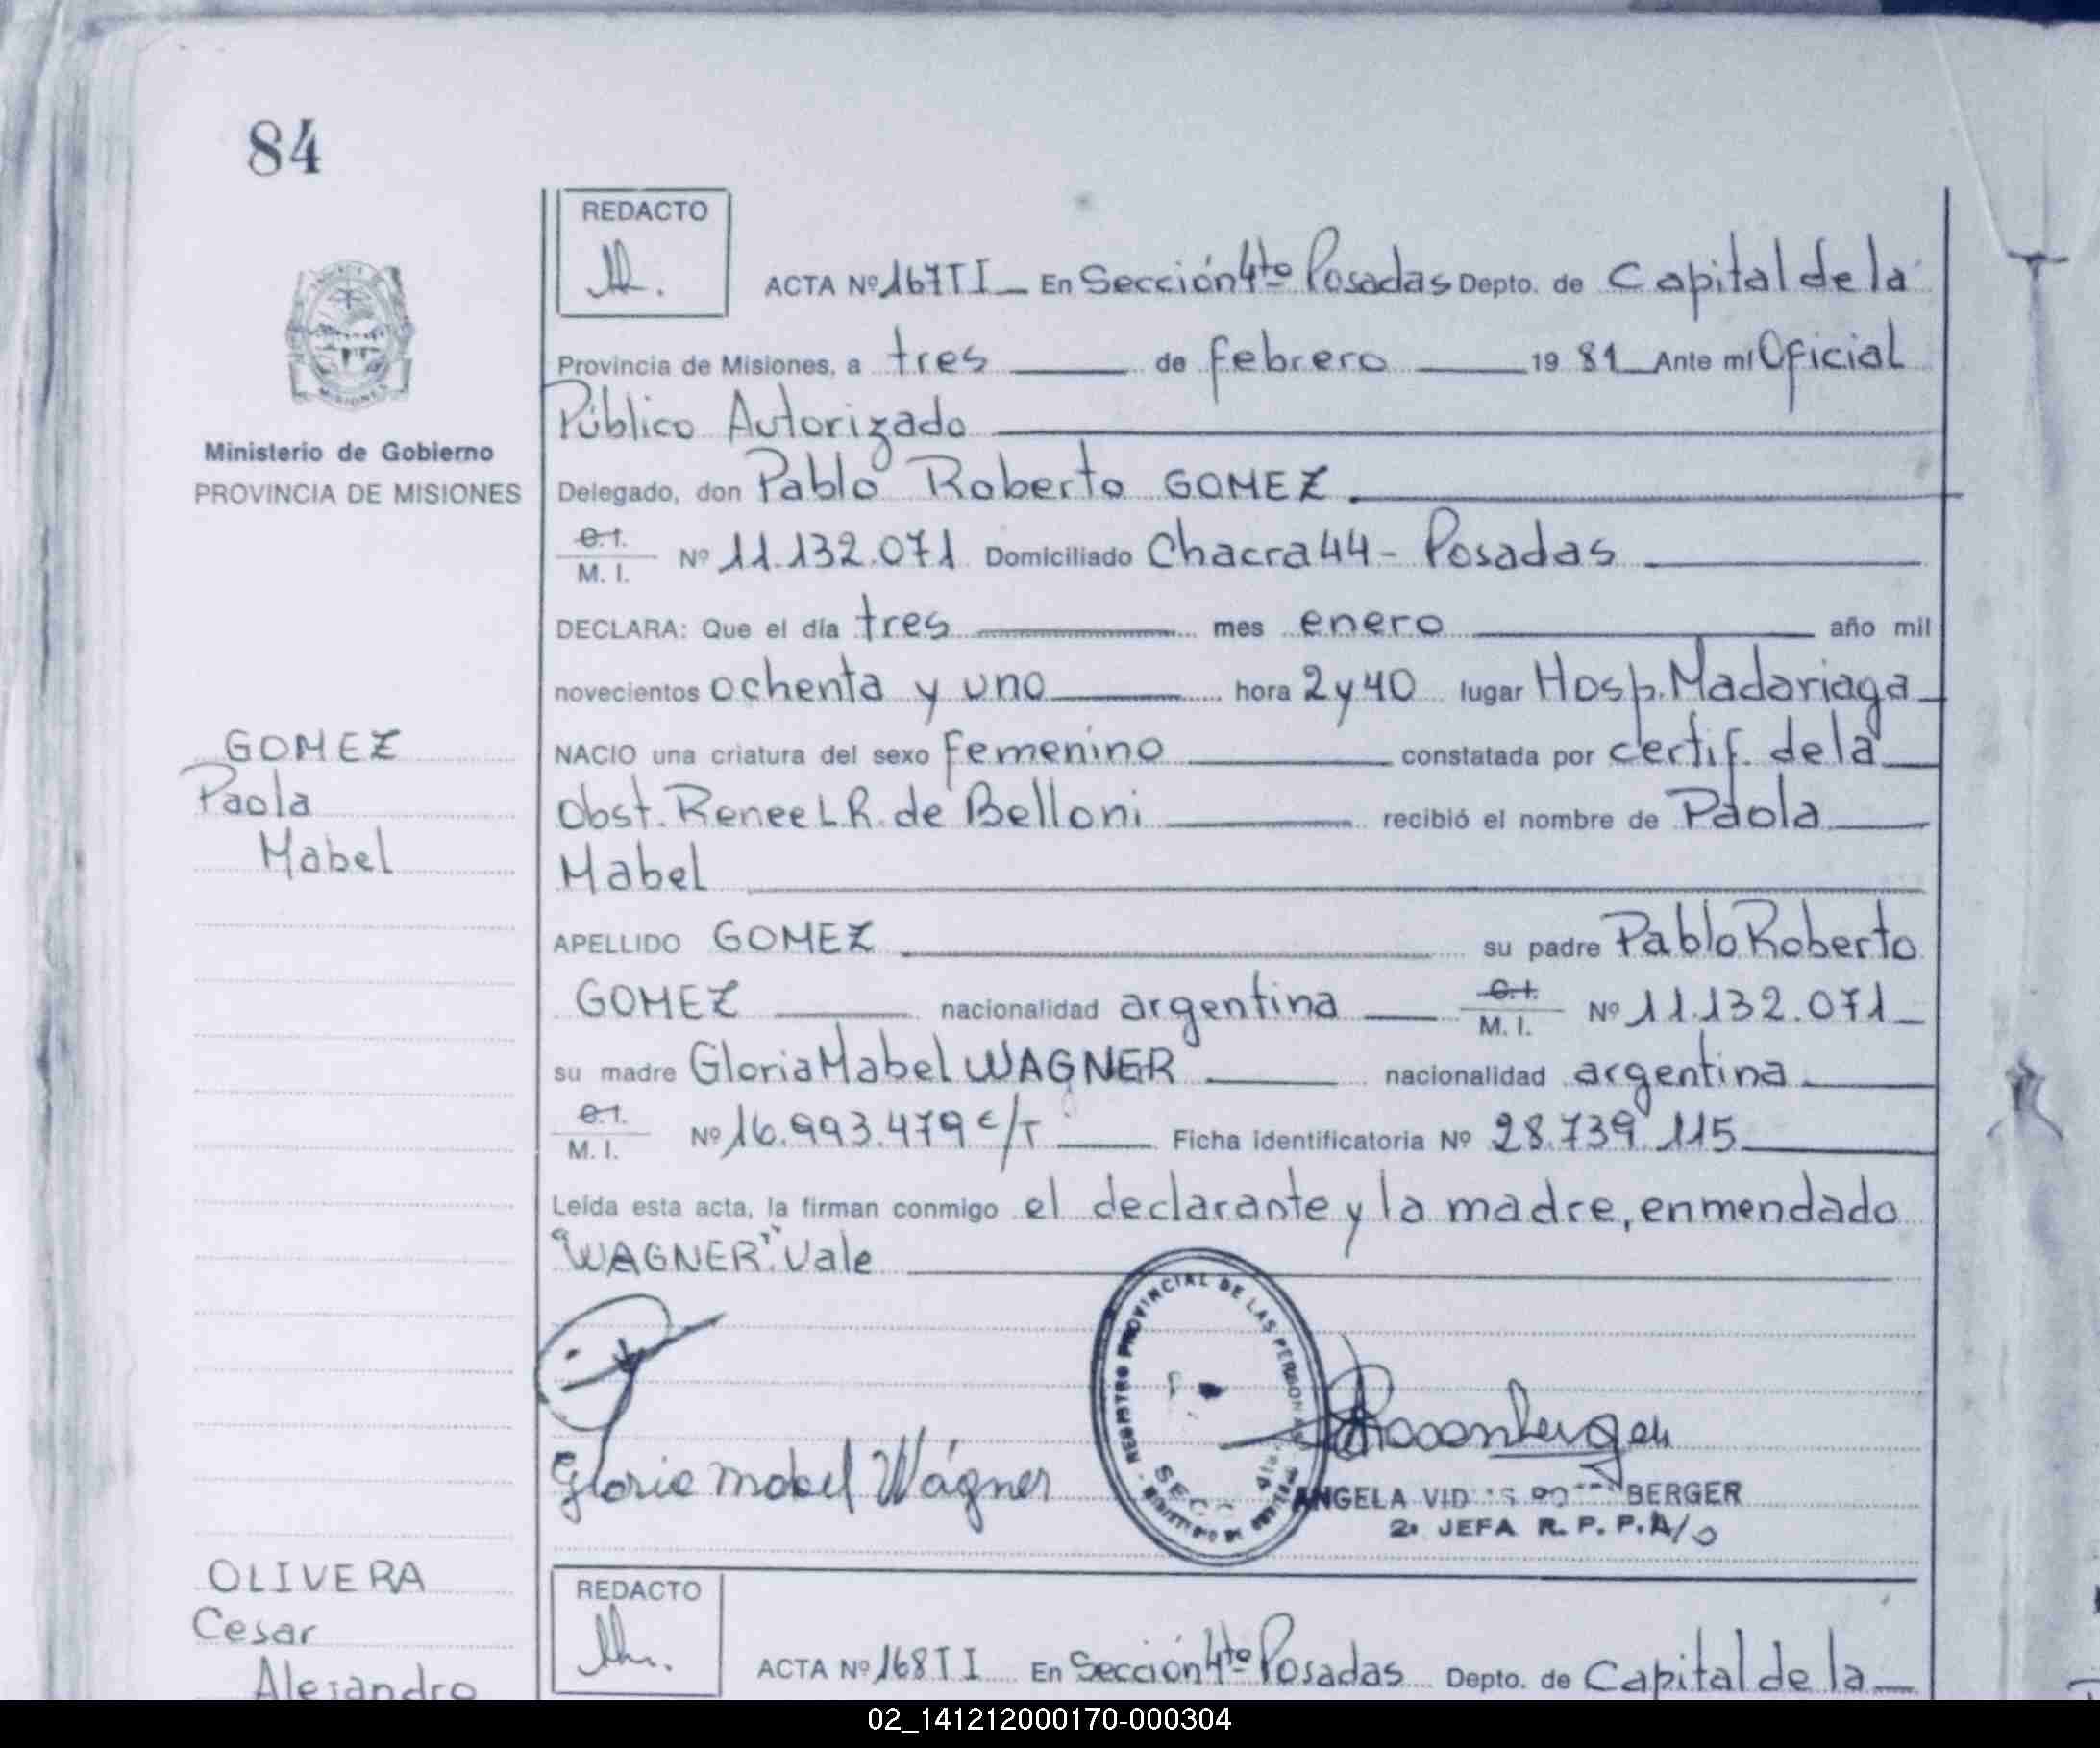 84
REDACTO
ACTA Nº 167 T I En Sección 4to Posadas Depto. de Capital de la
Provincia de Misiones, a tres de febrero 19 81 Ante mí Oficial
Público Autorizado
Ministerio de Gobierno
PROVINCIA DE MISIONES
Delegado, don Pablo Roberto GOMEZ.
C.I.
M. I. Nº 11.132.071 Domiciliado Chacra 44 - Posadas
DECLARA: Que el día tres mes enero año mil
novecientos ochenta y uno hora 2 y 40 lugar Hosp. Madariaga
GOMEZ
Paola
Mabel
NACIO una criatura del sexo femenino constatada por certif. de la
Obst. Renee L.R. de Belloni recibió el nombre de Paola
Mabel
APELLIDO GOMEZ su padre Pablo Roberto
GOMEZ nacionalidad argentina C.I. M. I. Nº 11.132.071
su madre Gloria Mabel WAGNER nacionalidad argentina
C.I.
M. I. Nº 16.993.479 c/T Ficha identificatoria Nº 28.739 115
Leída esta acta, la firman conmigo el declarante y la madre, enmendado
"WAGNER". Vale
REGISTRO PROVINCIAL DE LAS PERSONAS
SECC 4ta
Gloria Mabel Wágner
ANGELA BERGER
2ª JEFA R. P. P. A/O
OLIVERA
Cesar
Alejandro
REDACTO
ACTA Nº 168 T I En Sección 4to Posadas Depto. de Capital de la
02_141212000170-000304